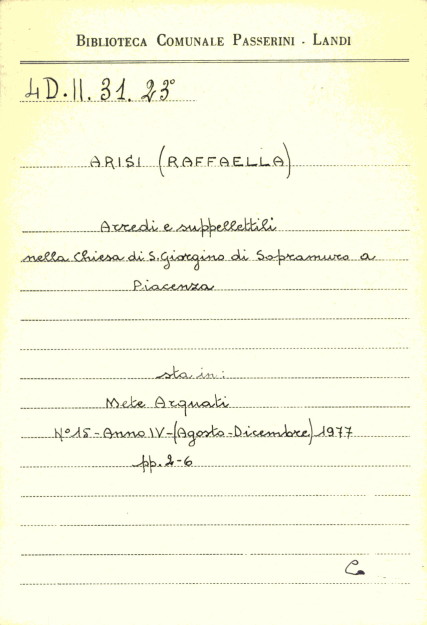 BIBLIOTECA COMUNALE PASSERINI - LANDI
4D.II.31.23°
ARISI (RAFFAELLA)
Arredi e suppellettili
nella Chiesa di S. Giorgino di Sopramuro a
Piacenza
sta in:
Mete Arquati
N° 15 - Anno IV - (Agosto - Dicembre) 1977
pp. 2-6